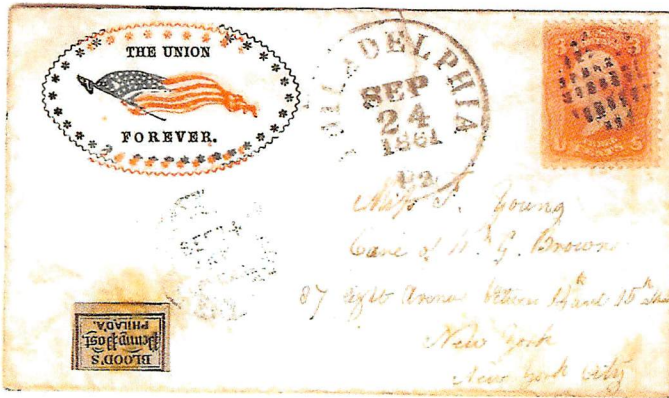 THE UNION
FOREVER.
PHILADELPHIA
SEP
24
1861
Pa
3 3
U CENTS S
Miss J. Young
Care of W. G. Browne
87 Avenue between 14th and 15th
New York
New York City
BLOOD'S
Penny Post
PHILADA.